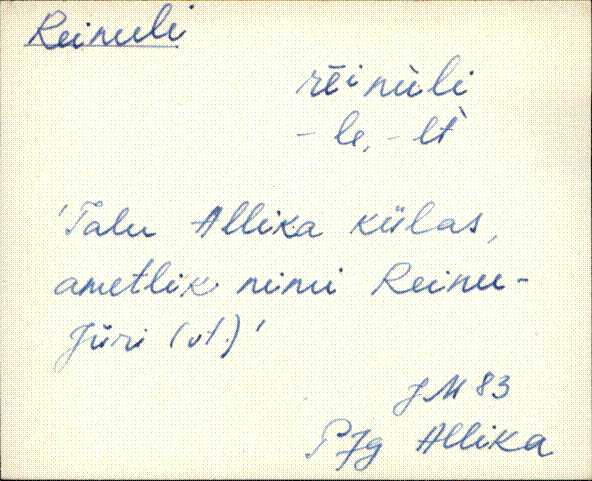 Reinuli
rēi nùli
- le, - lt̀
'Talu Allika külas,
ametlik nimi Reinu-
Jüri (vt.)'
JM 83
PJg Allika